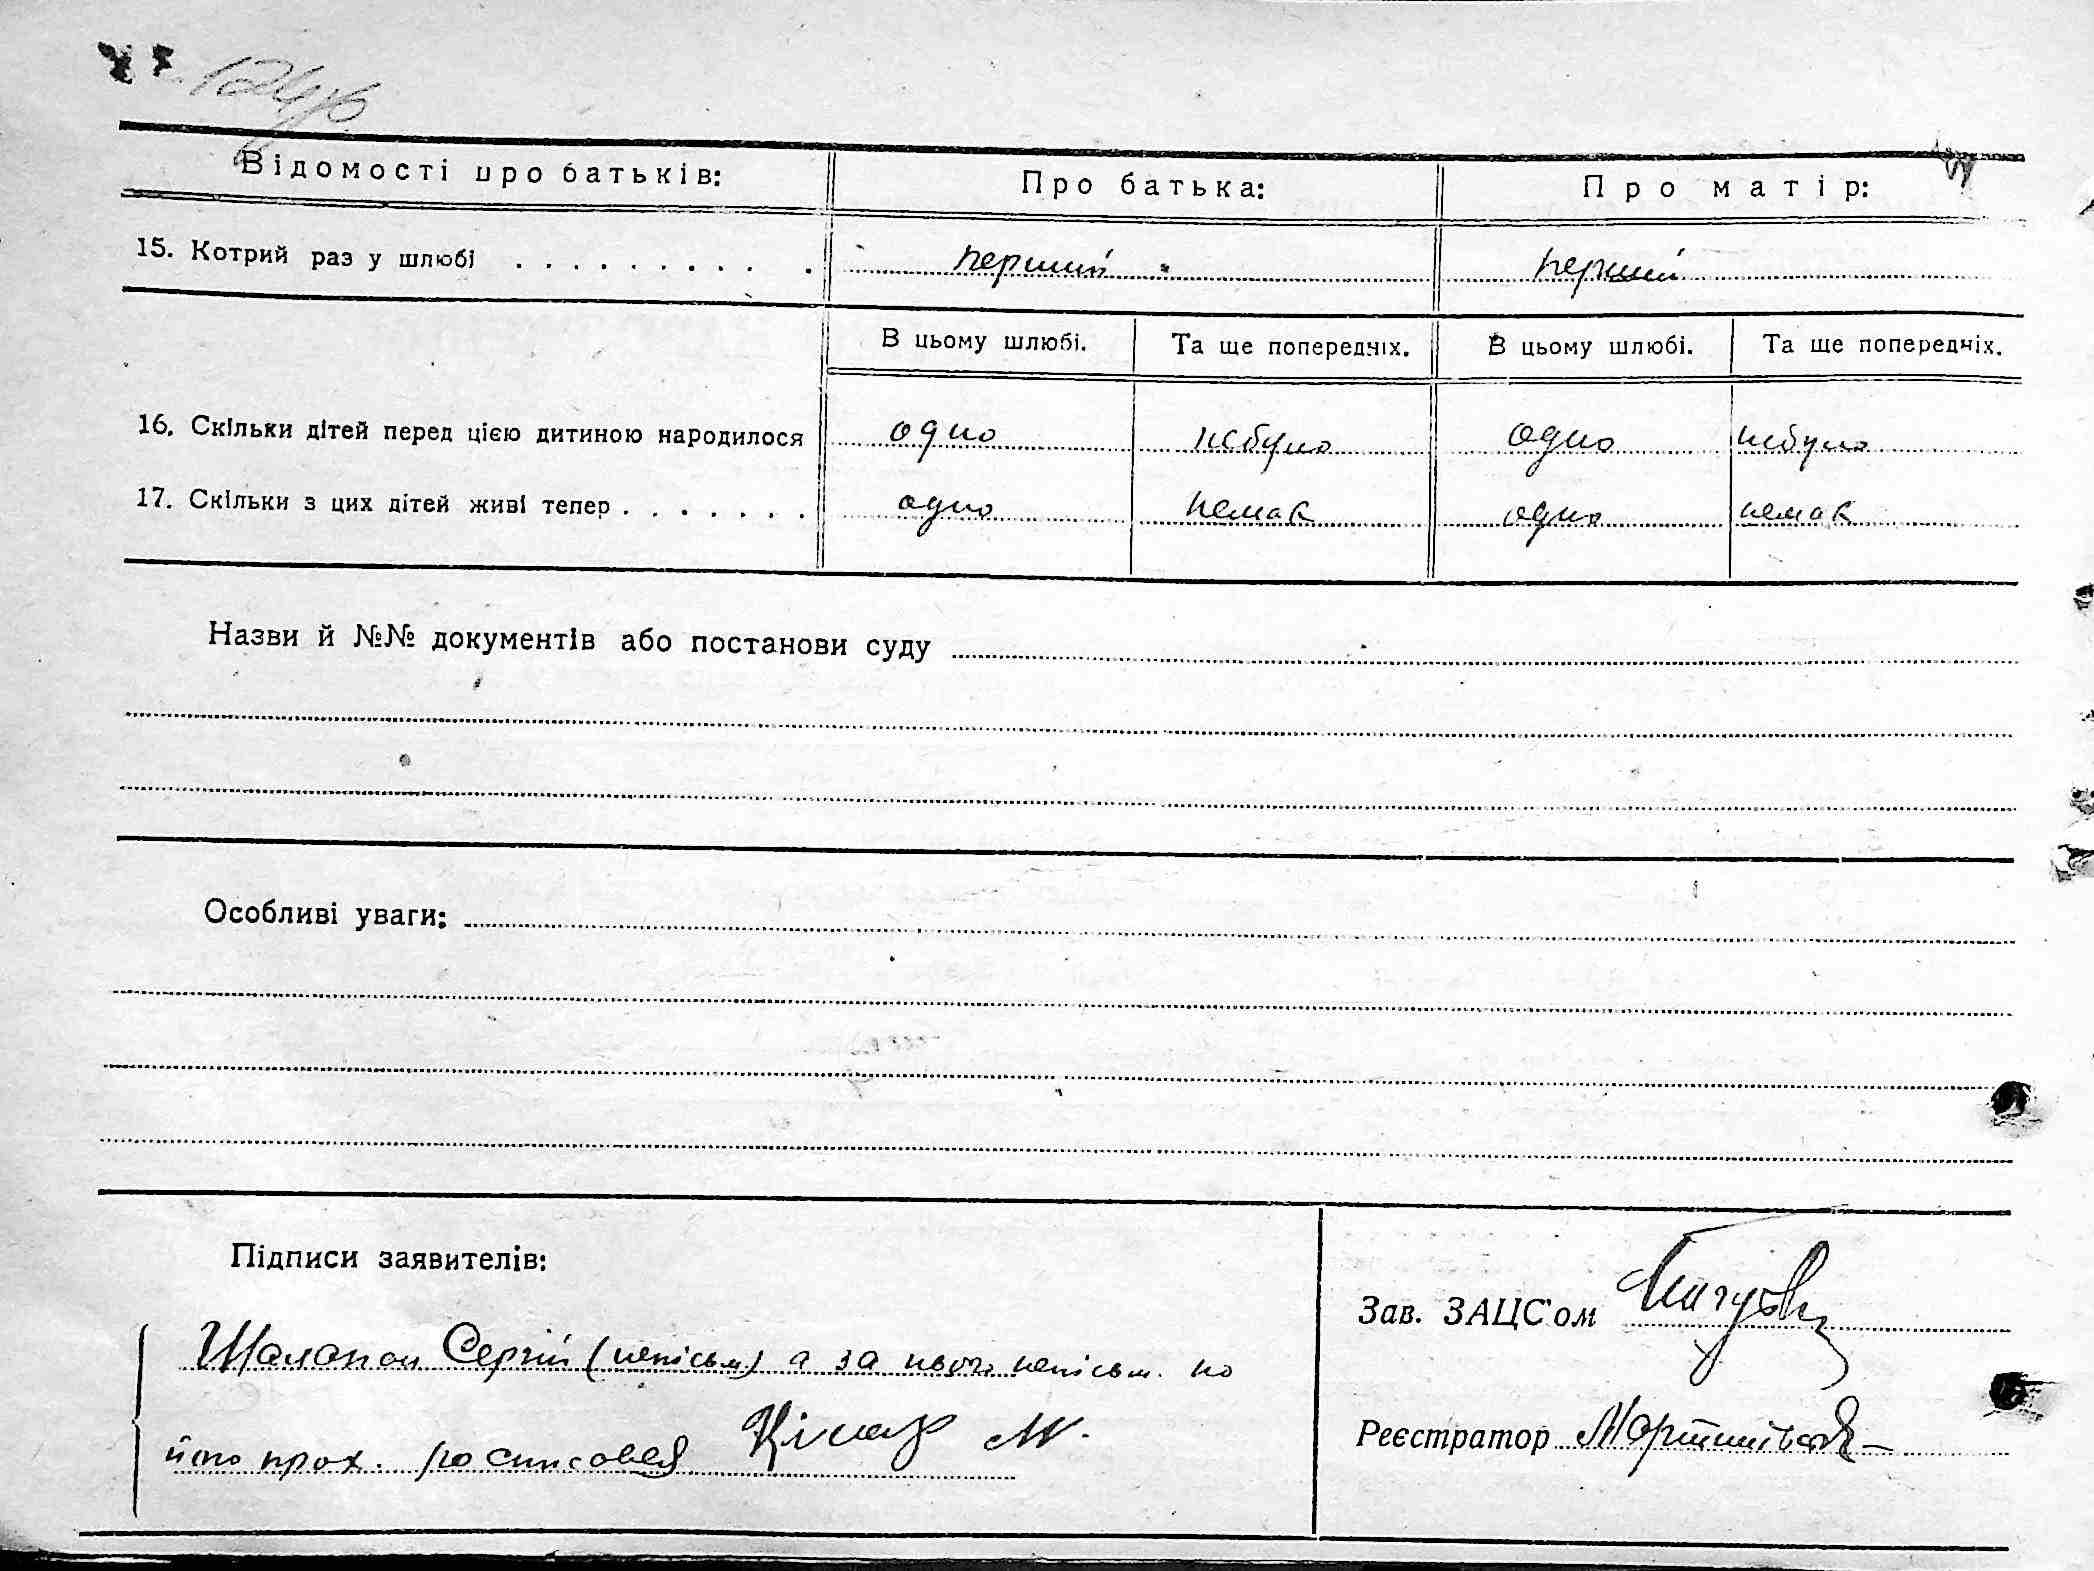 Відомості про батьків: Про батька: Про матір:
15. Котрий раз у шлюбі . . . . . . . . . . перший перший
В цьому шлюбі. Та ще попередніх. В цьому шлюбі. Та ще попередніх.
16. Скільки дітей перед цією дитиною народилося одно небуло одно небуло
17. Скільки з цих дітей живі тепер . . . . . . . одно немає одно немає
Назви й №№ документів або постанови суду
Особливі уваги:
Підписи заявителів:
Зав. ЗАЦС'ом
Сергій (непісьм) а за нього непісьм. по
його прох. росписовся М.
Реєстратор